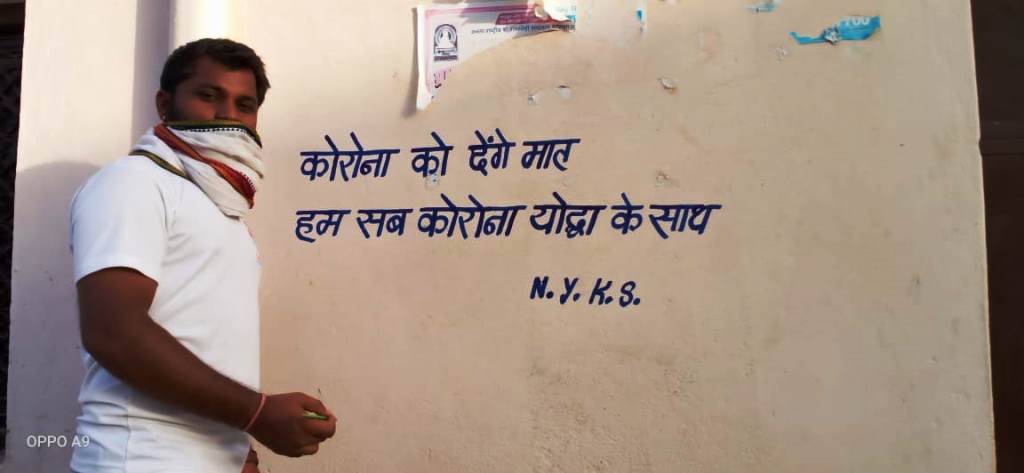 कोरोना को देंगे मात
हम सब कोरोना योद्धा के साथ
N.Y.K.S.
OPPO A9